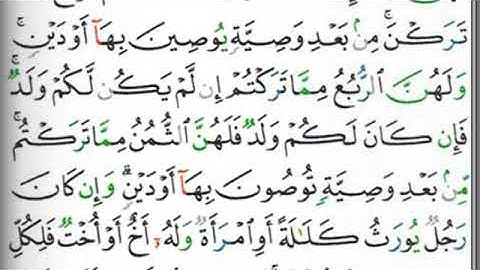 تَرَكْنَ ۚ مِنۢ بَعْدِ وَصِيَّةٍ يُوصِينَ بِهَآ أَوْ دَيْنٍ ۚ
وَلَهُنَّ ٱلرُّبُعُ مِمَّا تَرَكْتُمْ إِن لَّمْ يَكُن لَّكُمْ وَلَدٌ ۚ
فَإِن كَانَ لَكُمْ وَلَدٌ فَلَهُنَّ ٱلثُّمُنُ مِمَّا تَرَكْتُم ۚ
مِّنۢ بَعْدِ وَصِيَّةٍ تُوصُونَ بِهَآ أَوْ دَيْنٍ ۗ وَإِن كَانَ
رَجُلٌ يُورَثُ كَلَٰلَةً أَوِ ٱمْرَأَةٌ وَلَهُۥٓ أَخٌ أَوْ أُخْتٌ فَلِكُلِّ